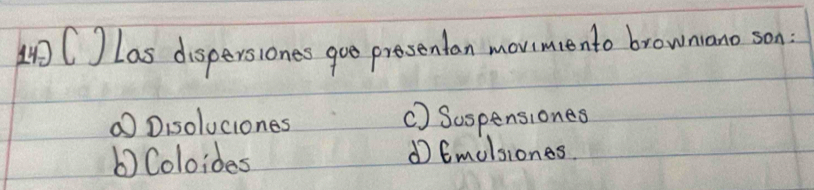 14) ( ) Las dispersiones que presentan movimiento browniano son:
a) Disoluciones c) Suspensiones
b) Coloides d) Emulsiones.